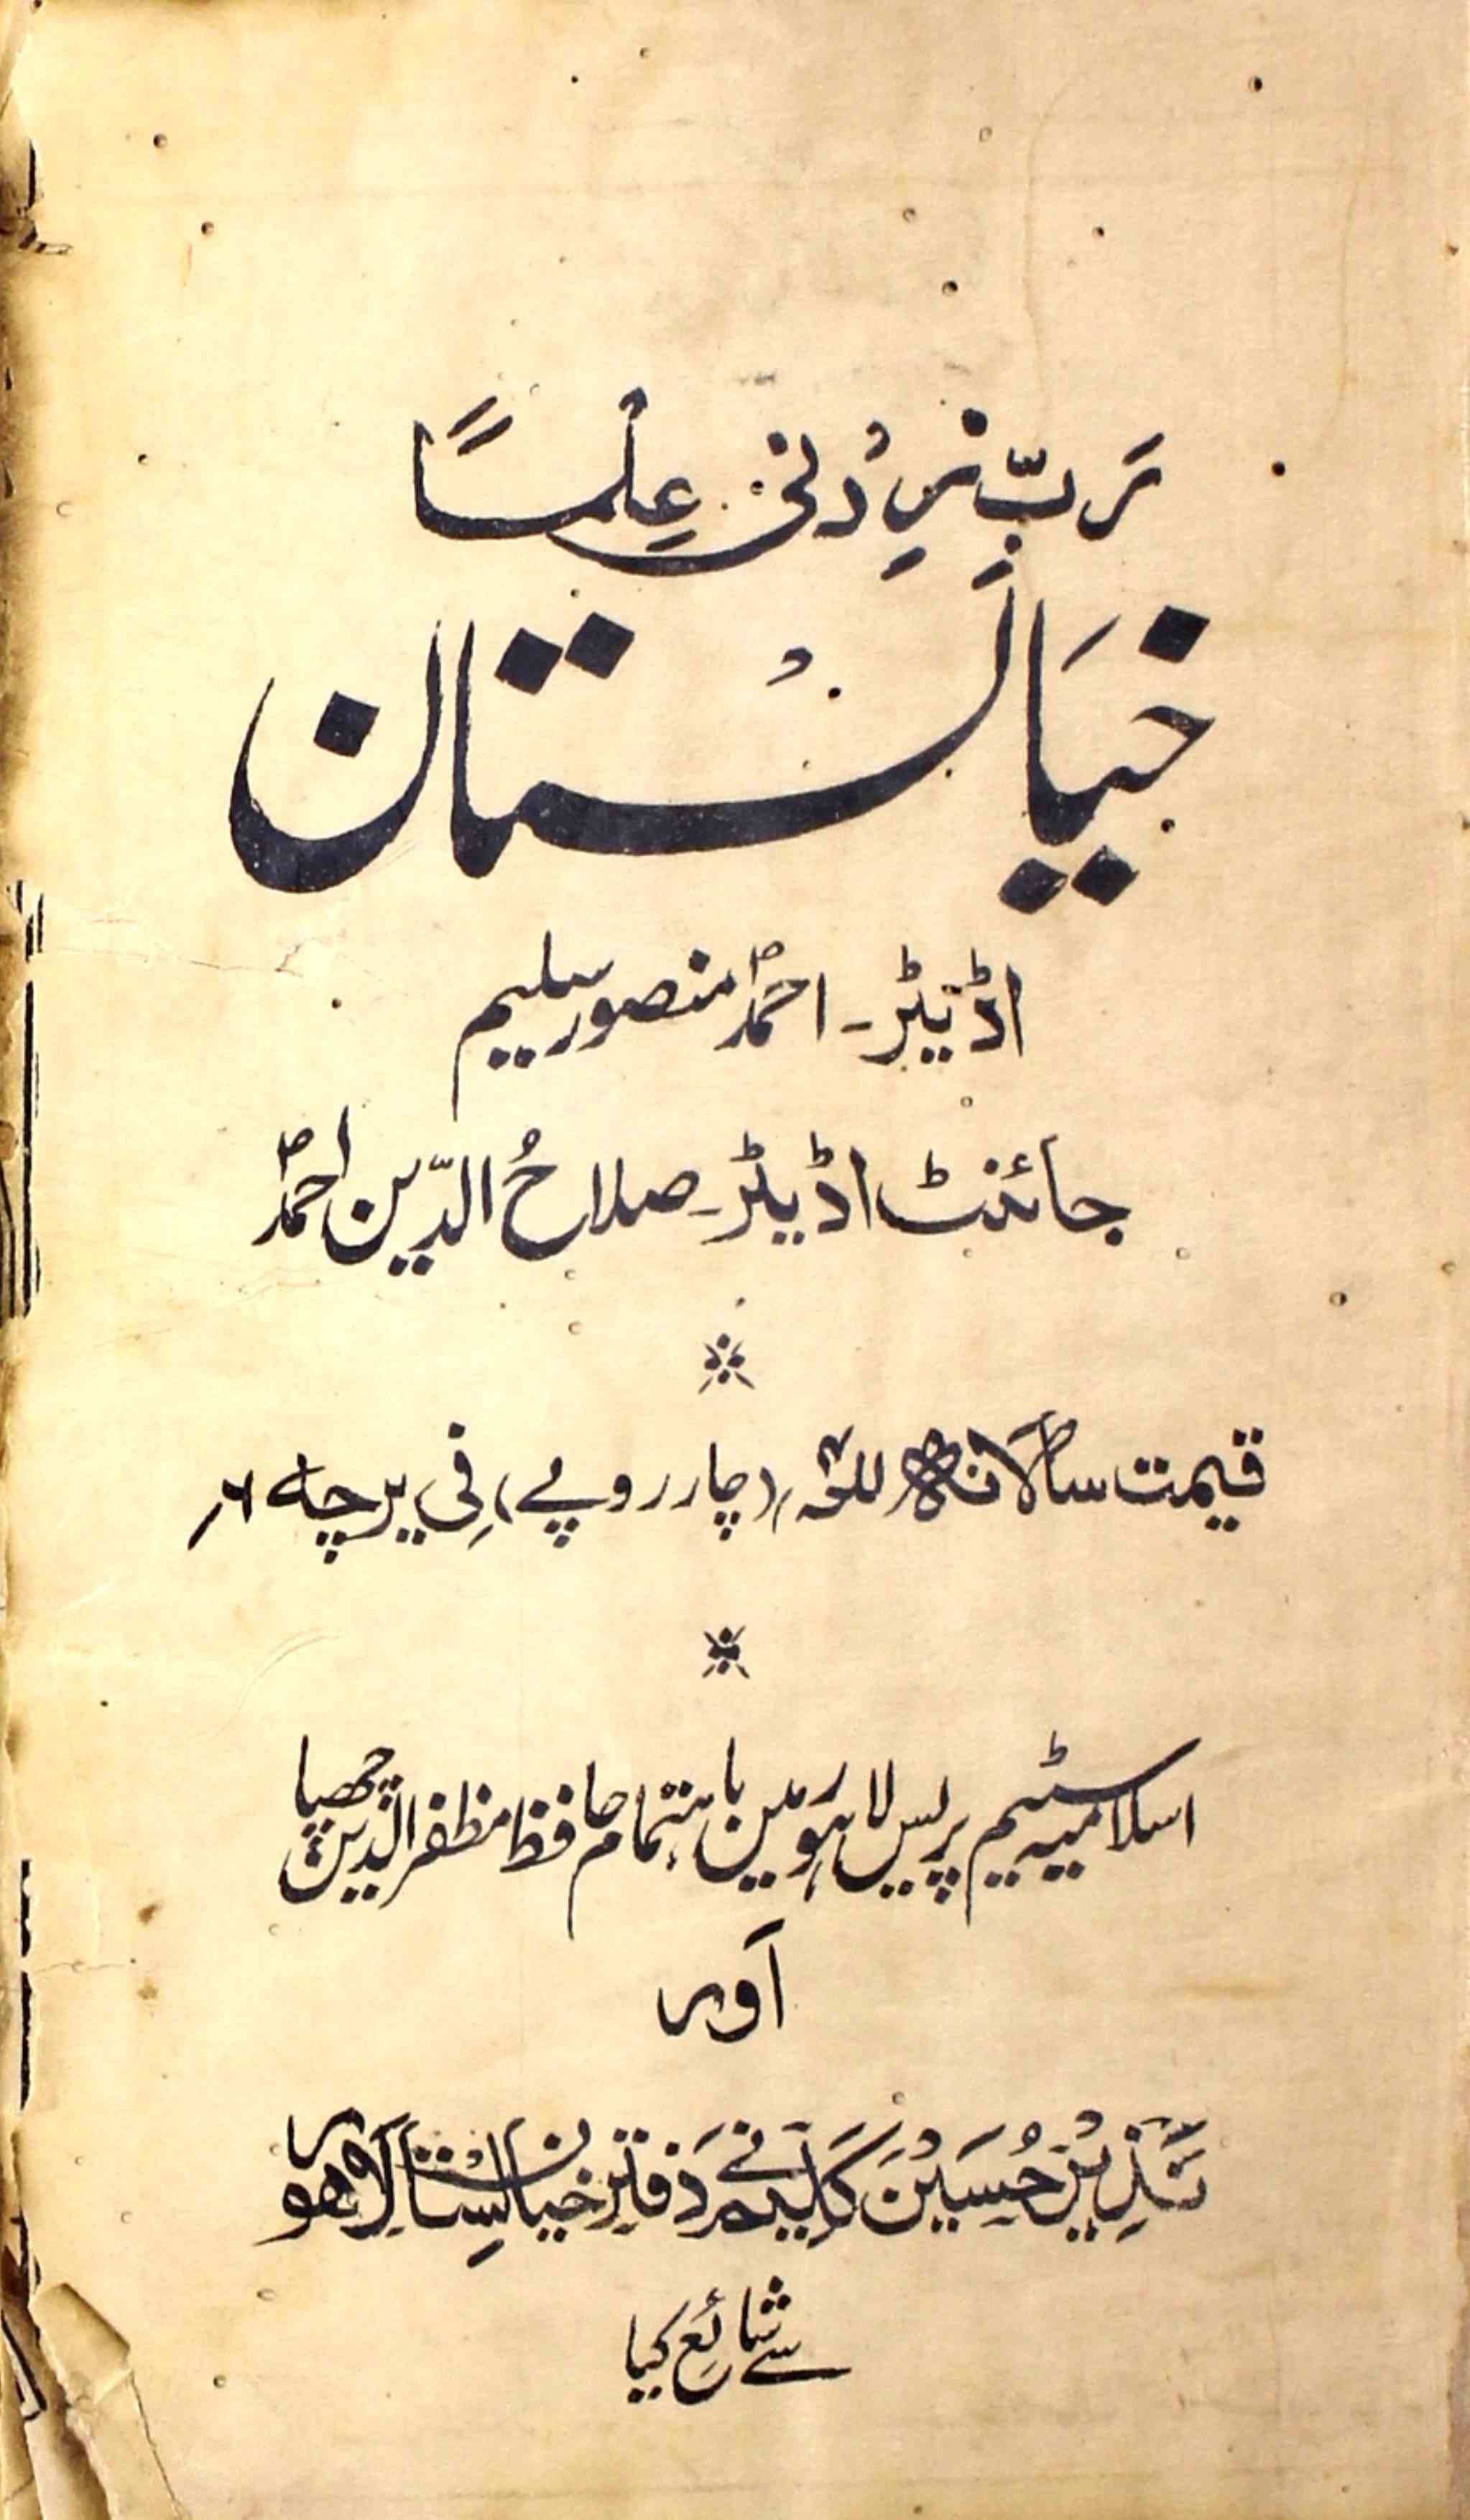 رَبِّ زِدْنِی عِلْمًا
خیَالَسْتان
اڈیٹر۔ احمدؐ منصور سلیم
جائنٹ اڈیٹر۔ صلاحُ الدّین احمدؐ
قیمت سالانہ للعہ/ (چار روپے) فِی پرچہ ۶/
اسلامیہ سٹیم پریس لاہور میں باہتمام حافظ مظفر الدین چھپا
اَور
نَذِیْر حُسَیْن کَلِیم نے دَفتر خیالِسْتان لَاہور
سے شائِع کیا